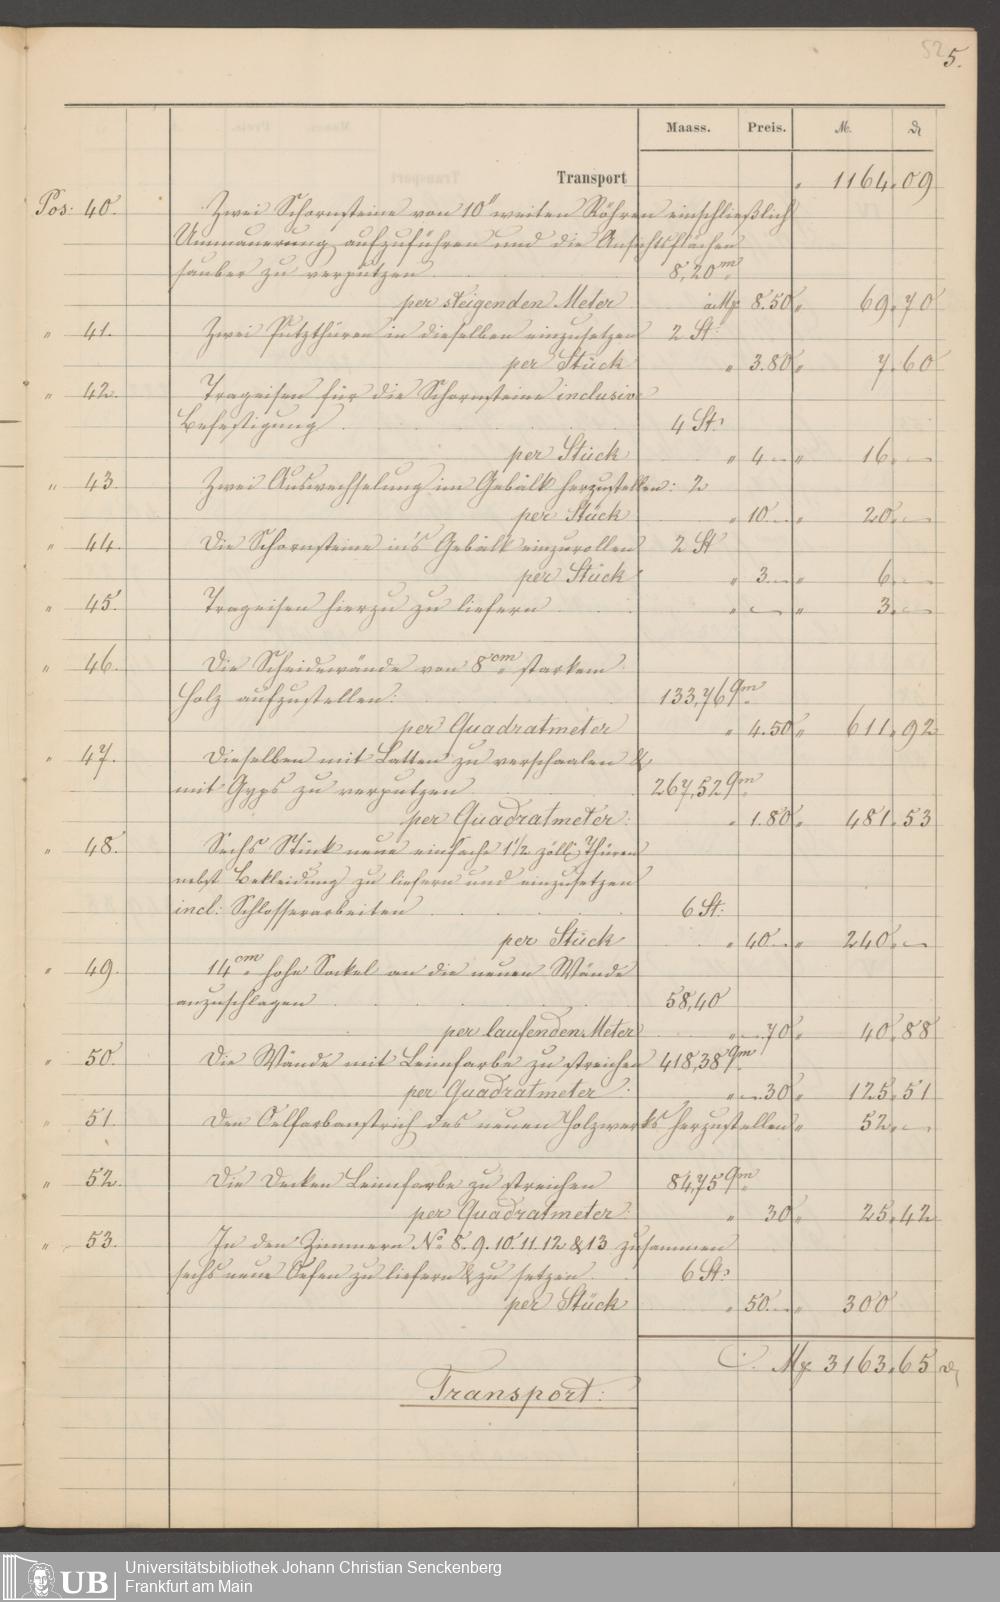 52 5.
Maass. Preis. M. ₰
Transport „ 1164.09
Pos: 40. Zwei Schornsteine von 10" weiten Röhren einschließlich
Ummauerung aufzuführen und die Ansichtsflächen
sauber zu verputzen 8,20 m
per steigenden Meter à Mk 8.50 „ 69.70
„ 41. Zwei Putzthüren in dieselben einzusetzen 2 St:
per Stück „ 3.80 „ 7.60
„ 42. Trageisen für die Schornsteine inclusive
Befestigung 4 St:
per Stück „ 4.— „ 16.—
„ 43. Zwei Auswechselung im Gebälk herzustellen: 2
per Stück „ 10.— „ 20.—
„ 44. Die Schornsteine in's Gebälk einzurollen 2 St
per Stück „ 3.— „ 6.—
„ 45. Trageisen hierzu zu liefern „ — „ 3.—
„ 46. Die Scheidewände von 8 cm starkem
Holz aufzustellen: 133,76 Qm
per Quadratmeter „ 4.50 „ 611.92
„ 47. Dieselben mit Latten zu verschaalen &
mit Gyps zu verputzen 267,52 Qm
per Quadratmeter: „ 1.80 „ 481.53
„ 48. Sechs Stück neue einfache 1 1/2 zöll. Thüren
nebst Bekleidung zu liefern und einzusetzen
incl: Schlosserarbeiten 6 St:
per Stück „ 40.— „ 240.—
„ 49. 14 cm hohe Sockel an die neuen Wände
anzuschlagen 58,40
per laufenden Meter „ —.70 „ 40.88
„ 50. Die Wände mit Leimfarbe zu streichen 418,38 Qm
per Quadratmeter: „ —.30 „ 125.51
„ 51. Den Oelfarbanstrich des neuen Holzwerks herzustellen „ 52.—
„ 52. Die Decken Leimfarbe zu streichen 84,75 Qm
per Quadratmeter: „ 30 „ 25.42
„ 53. In den Zimmern No 8. 9. 10. 11. 12 & 13 zusammen
sechs neue Oefen zu liefern & zu setzen 6 St:
per Stück „ 50.— „ 300
Mk 3163.65 ₰
Transport:
UB Universitätsbibliothek Johann Christian Senckenberg
Frankfurt am Main